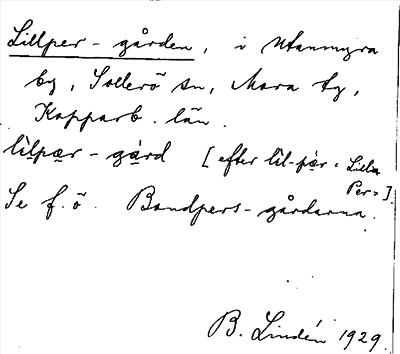 Lillper-gården, i Utanmyra
by, Sollerö sn, Mora tg,
Kopparb. län.
lilpær-gård [efter lil-pær = Lilla
Per=].
Se f.ö. Bondpers-gårdarna.
B. Lindén 1929.